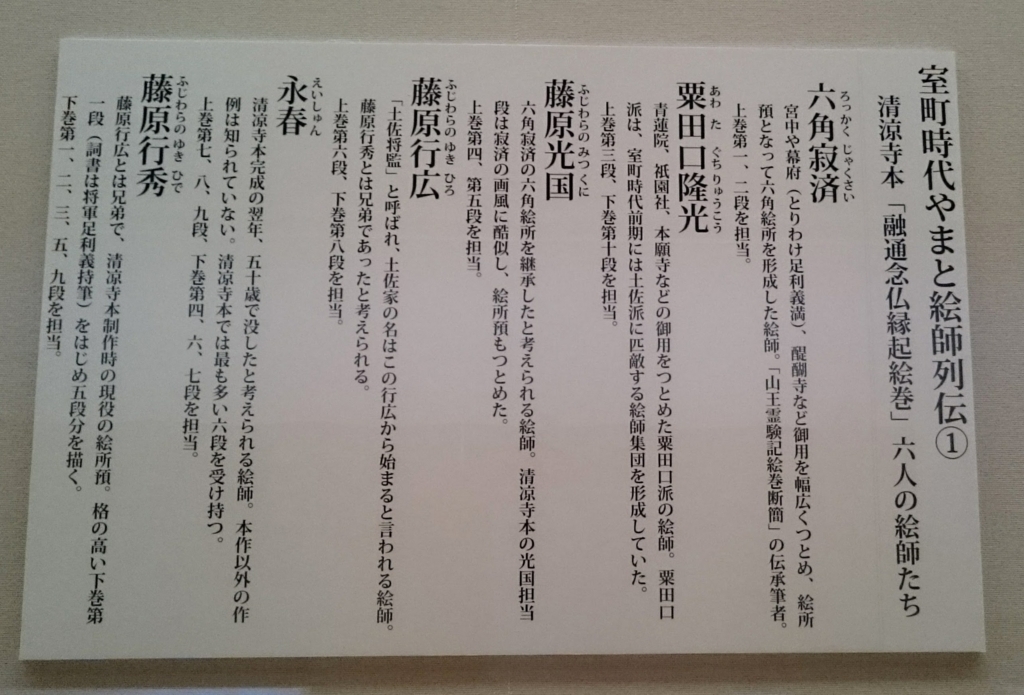 室町時代やまと絵師列伝①
清涼寺本「融通念仏縁起絵巻」六人の絵師たち
ろっかく じゃくさい
六角寂済
宮中や幕府（とりわけ足利義満）、醍醐寺など御用を幅広くつとめ、絵所
預となって六角絵所を形成した絵師。「山王霊験記絵巻断簡」の伝承筆者。
上巻第一、二段を担当。
あわ た ぐち りゅうこう
粟田口隆光
青蓮院、祇園社、本願寺などの御用をつとめた粟田口派の絵師。粟田口
派は、室町時代前期には土佐派に匹敵する絵師集団を形成していた。
上巻第三段、下巻第十段を担当。
ふじわらの みつ くに
藤原光国
六角寂済の六角絵所を継承したと考えられる絵師。清凉寺本の光国担当
段は寂済の画風に酷似し、絵所預もつとめた。
上巻第四、第五段を担当。
ふじわらの ゆき ひろ
藤原行広
「土佐将監」と呼ばれ、土佐家の名はこの行広から始まると言われる絵師。
藤原行秀とは兄弟であったと考えられる。
上巻第六段、下巻第八段を担当。
えいしゅん
永春
清凉寺本完成の翌年、五十歳で没したと考えられる絵師。本作以外の作
例は知られていない。清凉寺本では最も多い六段を受け持つ。
上巻第七、八、九段、下巻第四、六、七段を担当。
ふじわらの ゆき ひで
藤原行秀
藤原行広とは兄弟で、清凉寺本制作時の現役の絵所預。格の高い下巻第
一段（詞書は将軍足利義持筆）をはじめ五段分を描く。
下巻第一、二、三、五、九段を担当。